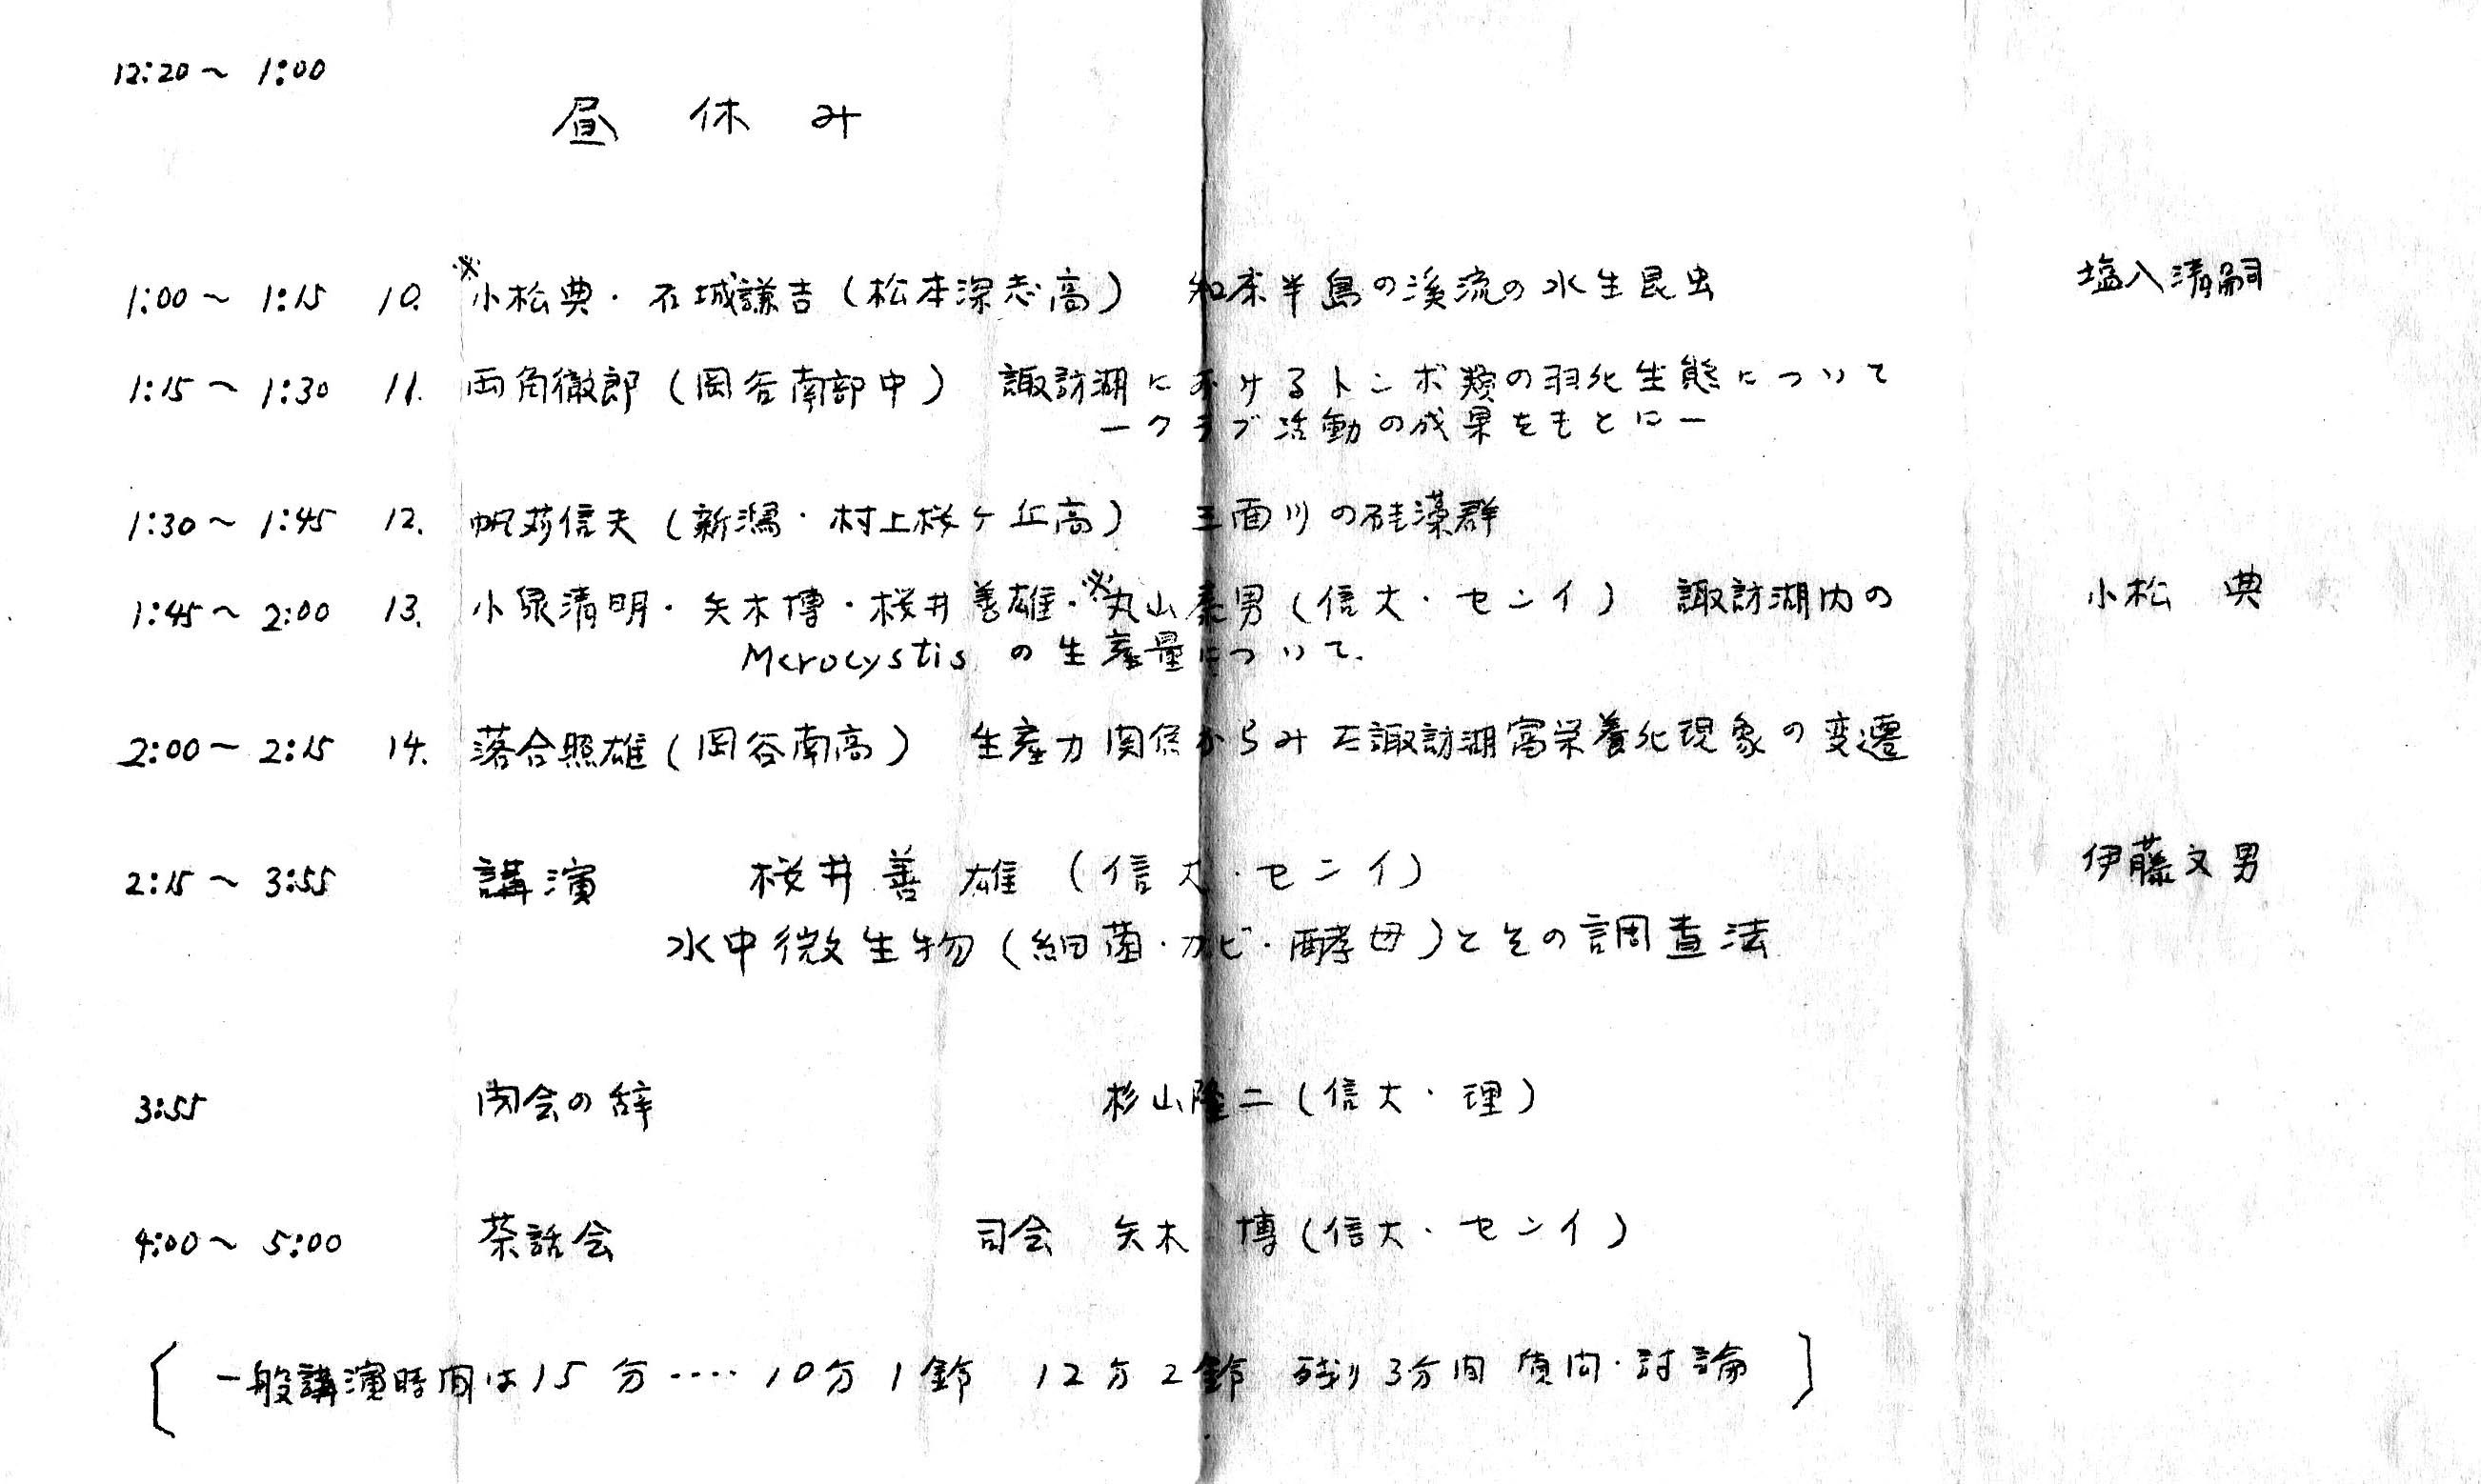 12:20～ 1:00
昼 休 み
1:00～ 1:15 10. ※小松典・石城謙吉（松本深志高） 知床半島の溪流の水生昆虫 塩入清嗣
1:15～ 1:30 11. 両角徹郎（岡谷南部中） 諏訪湖におけるトンボ類の羽化生態について
ークラブ活動の成果をもとにー
1:30～ 1:45 12. 帆苅信夫（新潟・村上桜ケ丘高） 三面川の硅藻群
1:45～ 2:00 13. 小泉清明・矢木博・桜井善雄・※丸山泰男（信大・センイ） 諏訪湖内の 小松 典
Mcrocystis の生産量について.
2:00～ 2:15 14. 落合照雄（岡谷南高） 生産力関係からみた諏訪湖富栄養化現象の変遷
2:15～ 3:55 講演 桜井善雄（信大・センイ） 伊藤文男
水中微生物（細菌・カビ・酵母）とその調査法
3:55 閉会の辞 杉山隆二（信大・理）
4:00～ 5:00 茶話会 司会 矢木 博（信大・センイ）
〔一般講演時間は15分‥‥10分1鈴 12分2鈴 残り3分間質問・討論〕